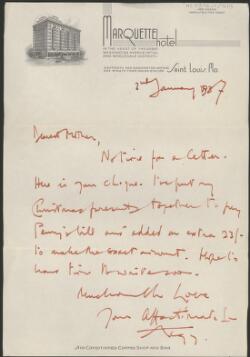 MARQUETTE
hotel
Saint Louis, Mo.
2nd January 1937
Dearest Mother,
No time for a letter.
Here is your cheque. I've put my
Christmas presents together to pay
bill and added an extra 33/-
to make the exact amount. Hope to
have time to write soon.
Much Love
Your Affectionate Son
AIR CONDITIONED COFFEE SHOP AND BAR